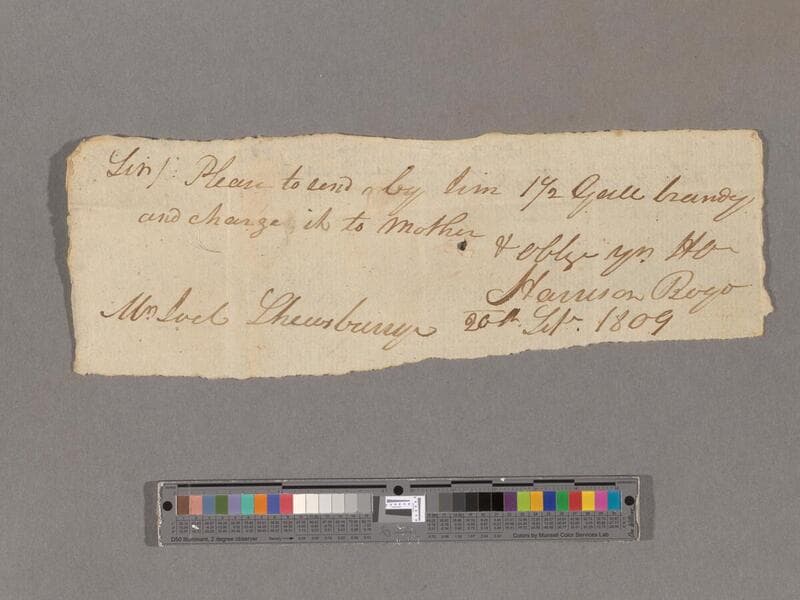 Sir/ Please to send by Jim 1 1/2 Gall brandy
and charge it to Mother
& oblge yr. Ho
Harrison Rogo
Mr. Joel Shewsburye 20th Sepr. 1809
D50 Illuminant, 2 degree observer
Density
Colors by Munsell Color Services Lab